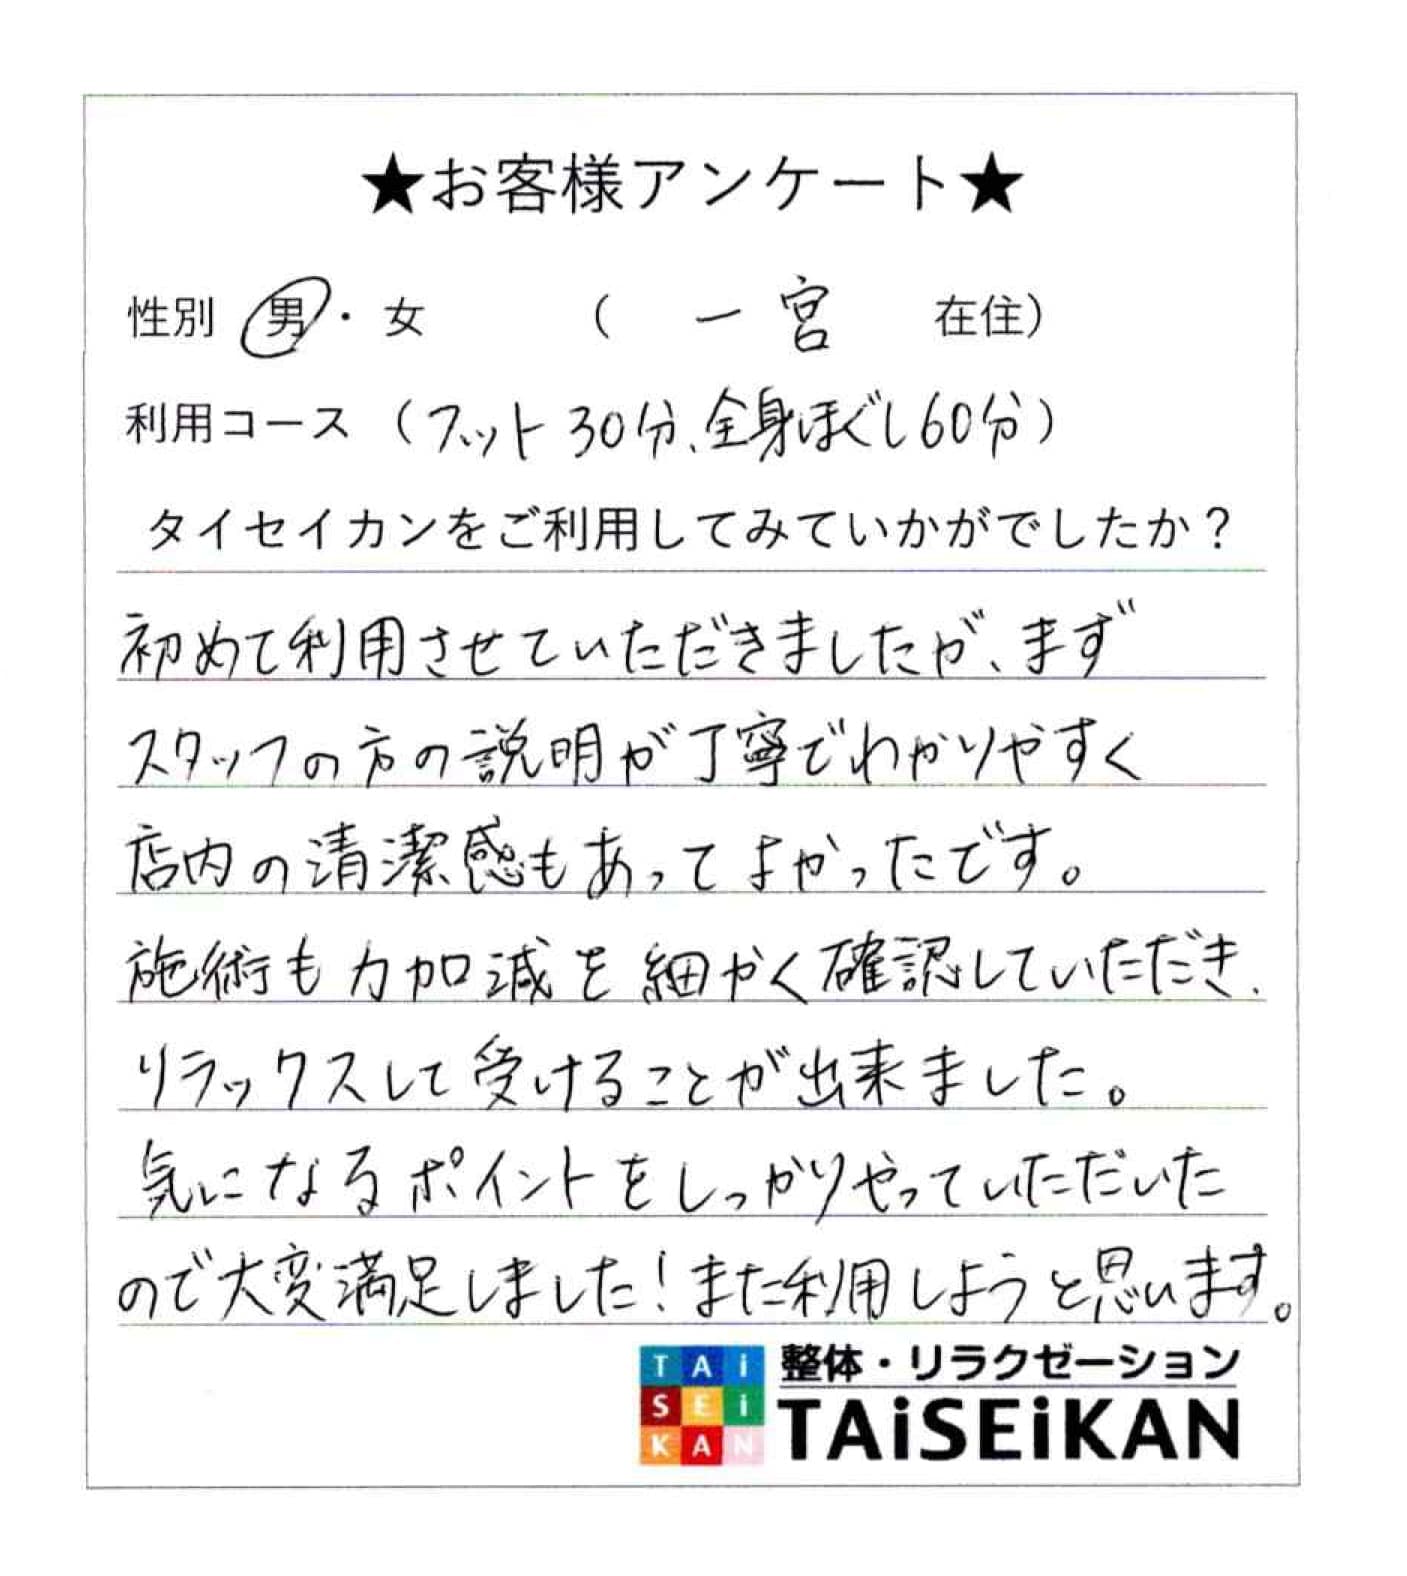 ★お客様アンケート★
性別 男・女 ( 一宮 在住)
利用コース (フット30分、全身ほぐし60分)
タイセイカンをご利用してみていかがでしたか?
初めて利用させていただきましたが、まず
スタッフの方の説明が丁寧でわかりやすく
店内の清潔感もあってよかったです。
施術も力加減を細やかく確認していただき、
リラックスして受けることが出来ました。
気になるポイントをしっかりやっていただいた
ので大変満足しました!また利用しようと思います。
TAiSEiKAN 整体・リラクゼーション
TAiSEiKAN